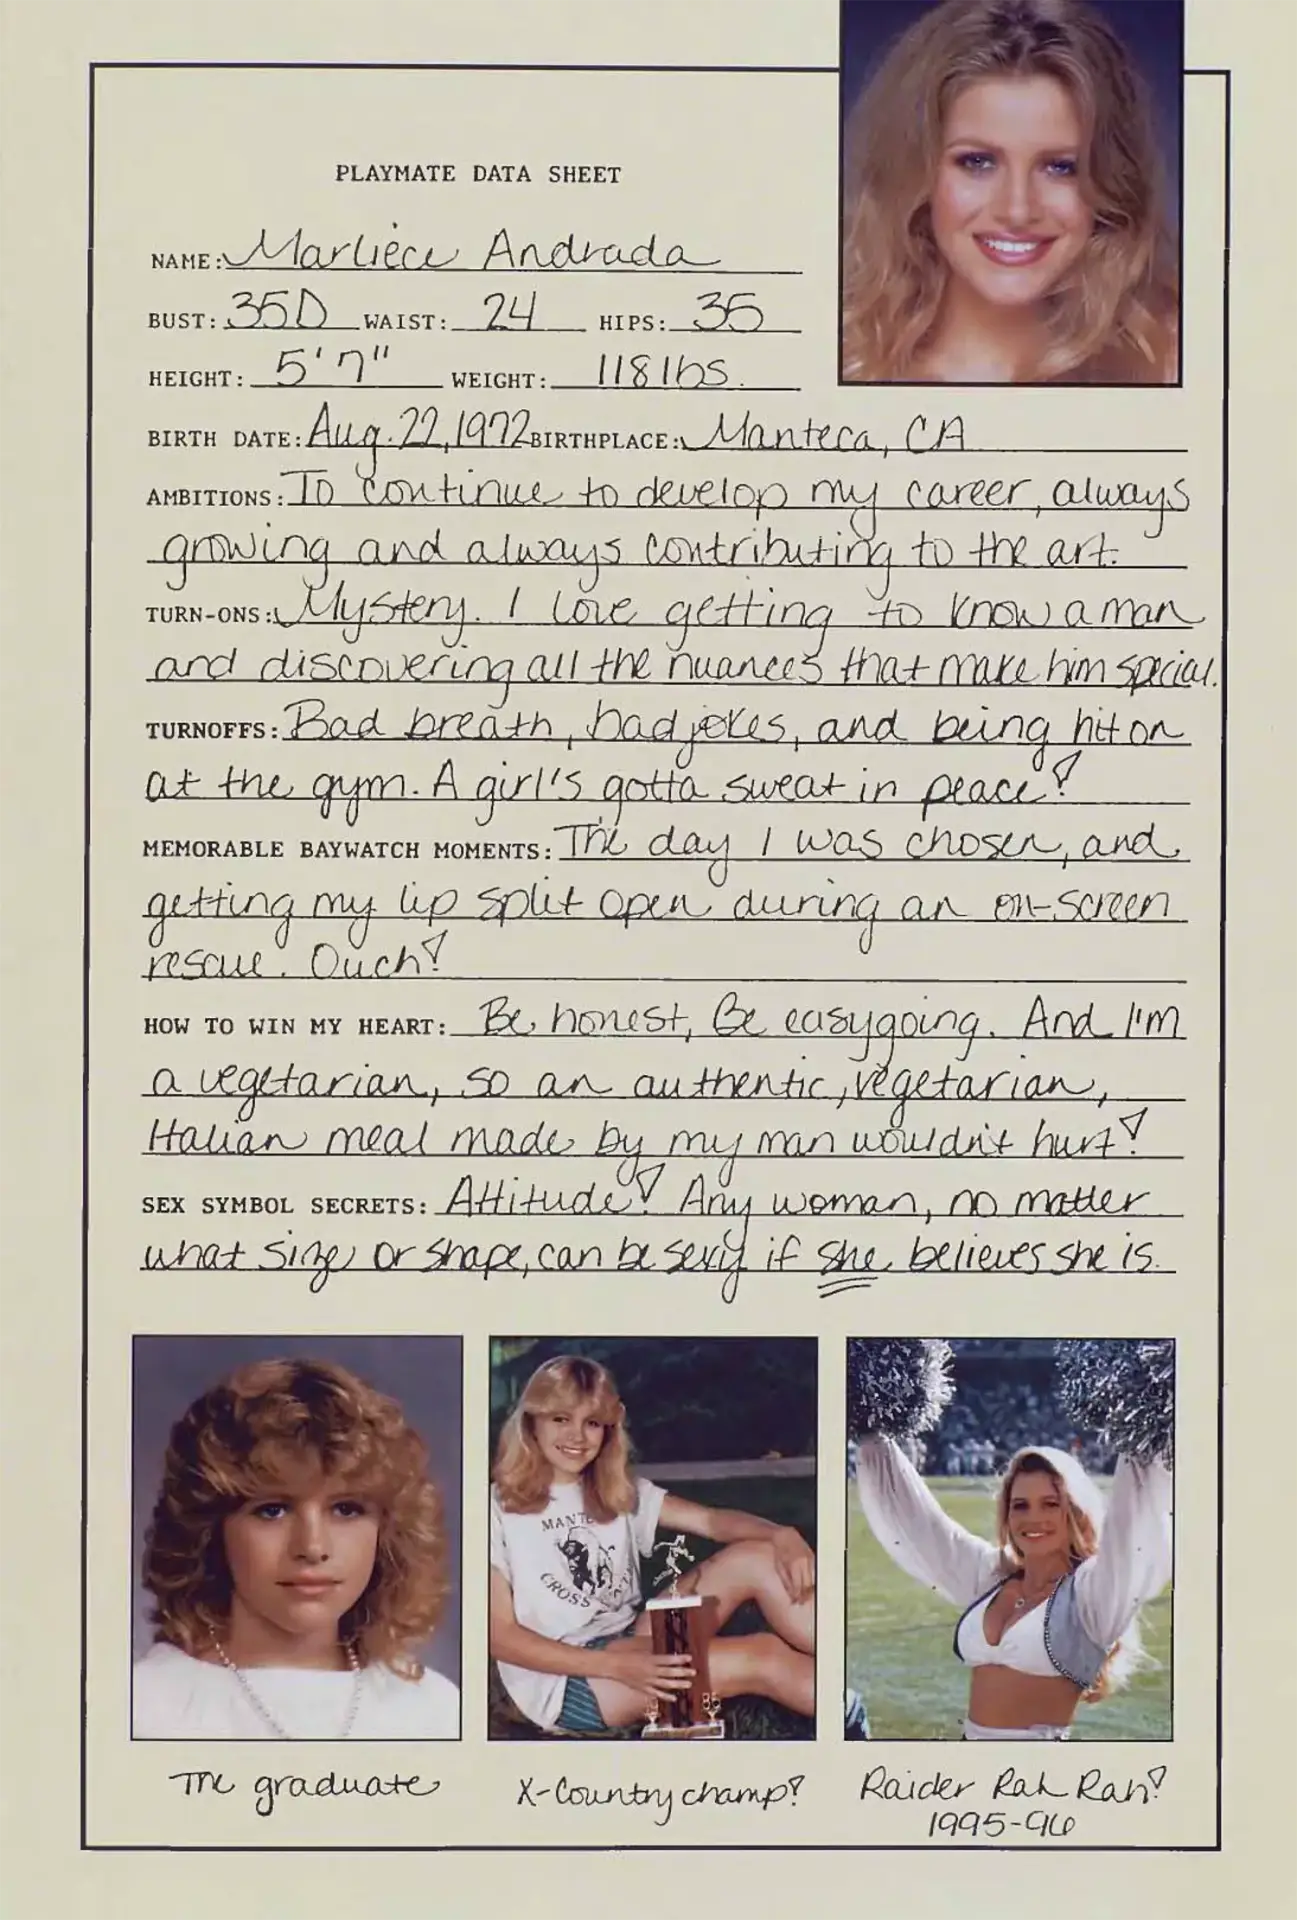 PLAYMATE DATA SHEET
NAME: Marliece Andrada
BUST: 35D WAIST: 24 HIPS: 35
HEIGHT: 5'7" WEIGHT: 118 lbs.
BIRTH DATE: Aug. 22, 1972 BIRTHPLACE: Manteca, CA
AMBITIONS: To continue to develop my career, always
growing and always contributing to the art.
TURN-ONS: Mystery. I love getting to know a man
and discovering all the nuances that make him special.
TURNOFFS: Bad breath, bad jokes, and being hit on
at the gym. A girl's gotta sweat in peace!
MEMORABLE BAYWATCH MOMENTS: The day I was chosen, and
getting my lip split open during an on-screen
rescue. Ouch!
HOW TO WIN MY HEART: Be honest, Be easygoing. And I'm
a vegetarian, so an authentic, vegetarian,
Italian meal made by my man wouldn't hurt!
SEX SYMBOL SECRETS: Attitude! Any woman, no matter
what size or shape, can be sexy if she believes she is.
CROSS
85
The graduate
X-Country champ!
Raider Rah Rah!
1995-96